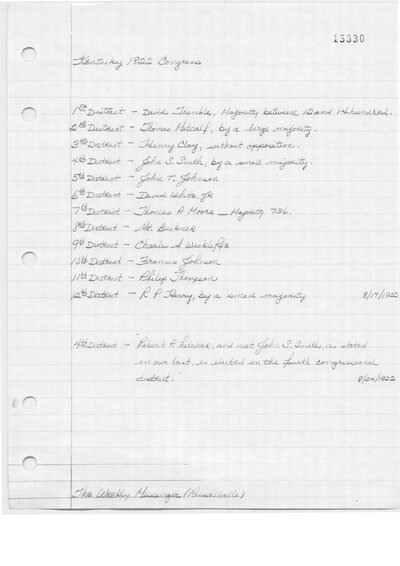 13330
Kentucky 1822 Congress
1st District - David Trimble, Majority between 12 and 14 hundred.
2nd District - Thomas Metcalf, by a large majority.
3rd District - Henry Clay, without opposition.
4th District - John S. Smith, by a small majority.
5th District - John T. Johnson
6th District - David White, Jr
7th District - Thomas P. Moore - Majority 736.
8th District - Mr. Buckner
9th District - Charles A Wickliffe
10th District - Francis Johnson
11th District - Philip Thompson
12th District - R P Henry, by a small majority 8/17/1822
4th District - "Robert P. Letcher, and not John S. Smith, as stated
in our last, is elected in the fourth congressional
district." 8/24/1822
The Weekly Messenger (Russellville)